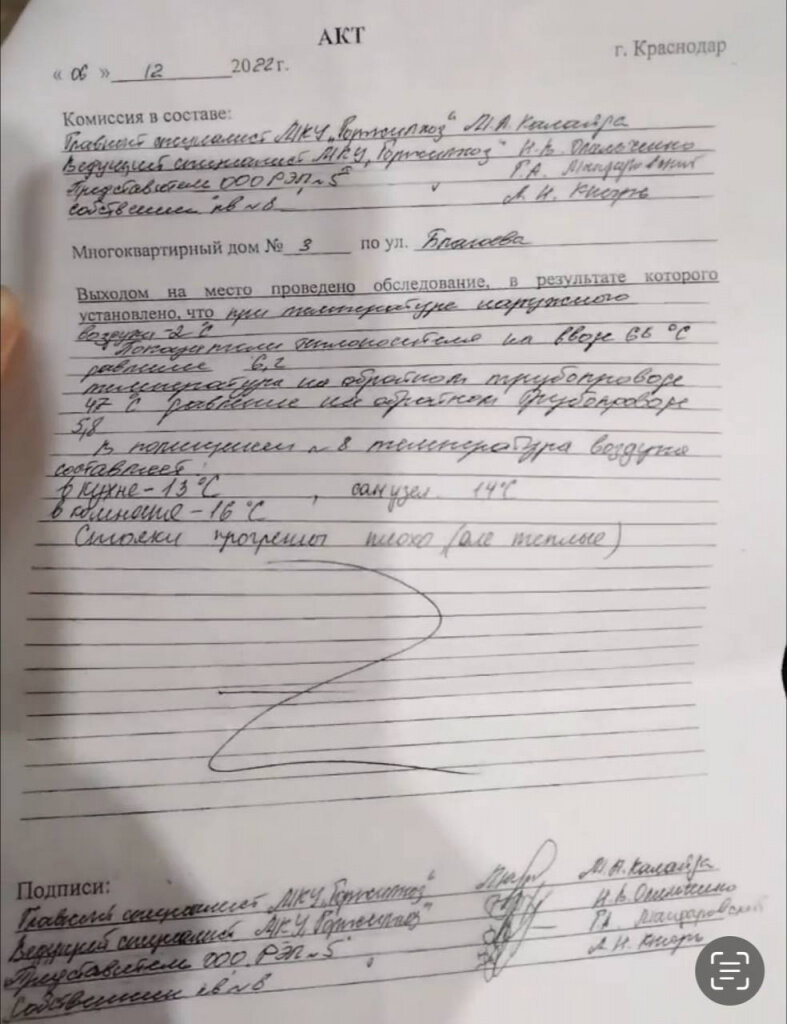 АКТ
« 06 » 12 2022 г. г. Краснодар
Комиссия в составе:
Главный специалист МКУ „Горжилхоз" М.А. Калайда
Ведущий специалист МКУ „Горжилхоз" Н.В.
Представитель ООО РЭП № 5
Собственник кв № 8 Л. Н.
Многоквартирный дом № 3 по ул. Благоева
Выходом на место проведено обследование, в результате которого
установлено, что при температуре наружного
воздуха -2 °С
Показатели теплоносителя на вводе 66 °С
давление 6,2
температура на обратном трубопроводе
47 °С давление на обратном трубопроводе
5,8
В помещении № 8 температура воздуха
составляет:
в кухне - 13 °С , санузел 14°С
в комнате - 16 °С
Стояки прогреты плохо (еле теплые)
Подписи:
Главный специалист МКУ „Горжилхоз" М.А. Калайда
Ведущий специалист МКУ „Горжилхоз" Н.В.
Представитель ООО РЭП № 5
Собственник кв № 8 Л. Н.